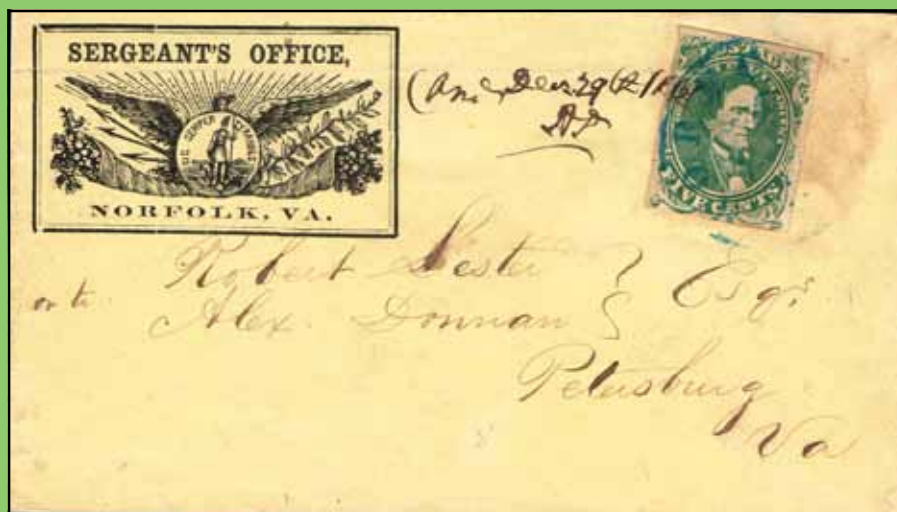 SERGEANT'S OFFICE,
SIC SEMPER TYRANNIS
NORFOLK, VA.
FIVE CENTS
Robert Lester
or to Alex. Donnan } Esqrs
Petersburg
Va